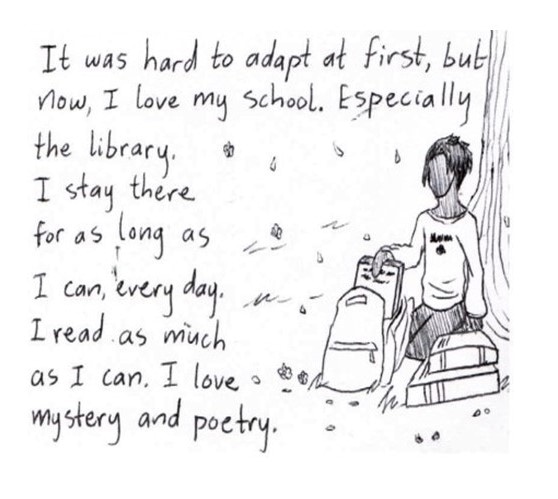 It was hard to adapt at first, but
now, I love my school. Especially
the library.
I stay there
for as long as
I can, every day.
I read as much
as I can. I love
mystery and poetry.